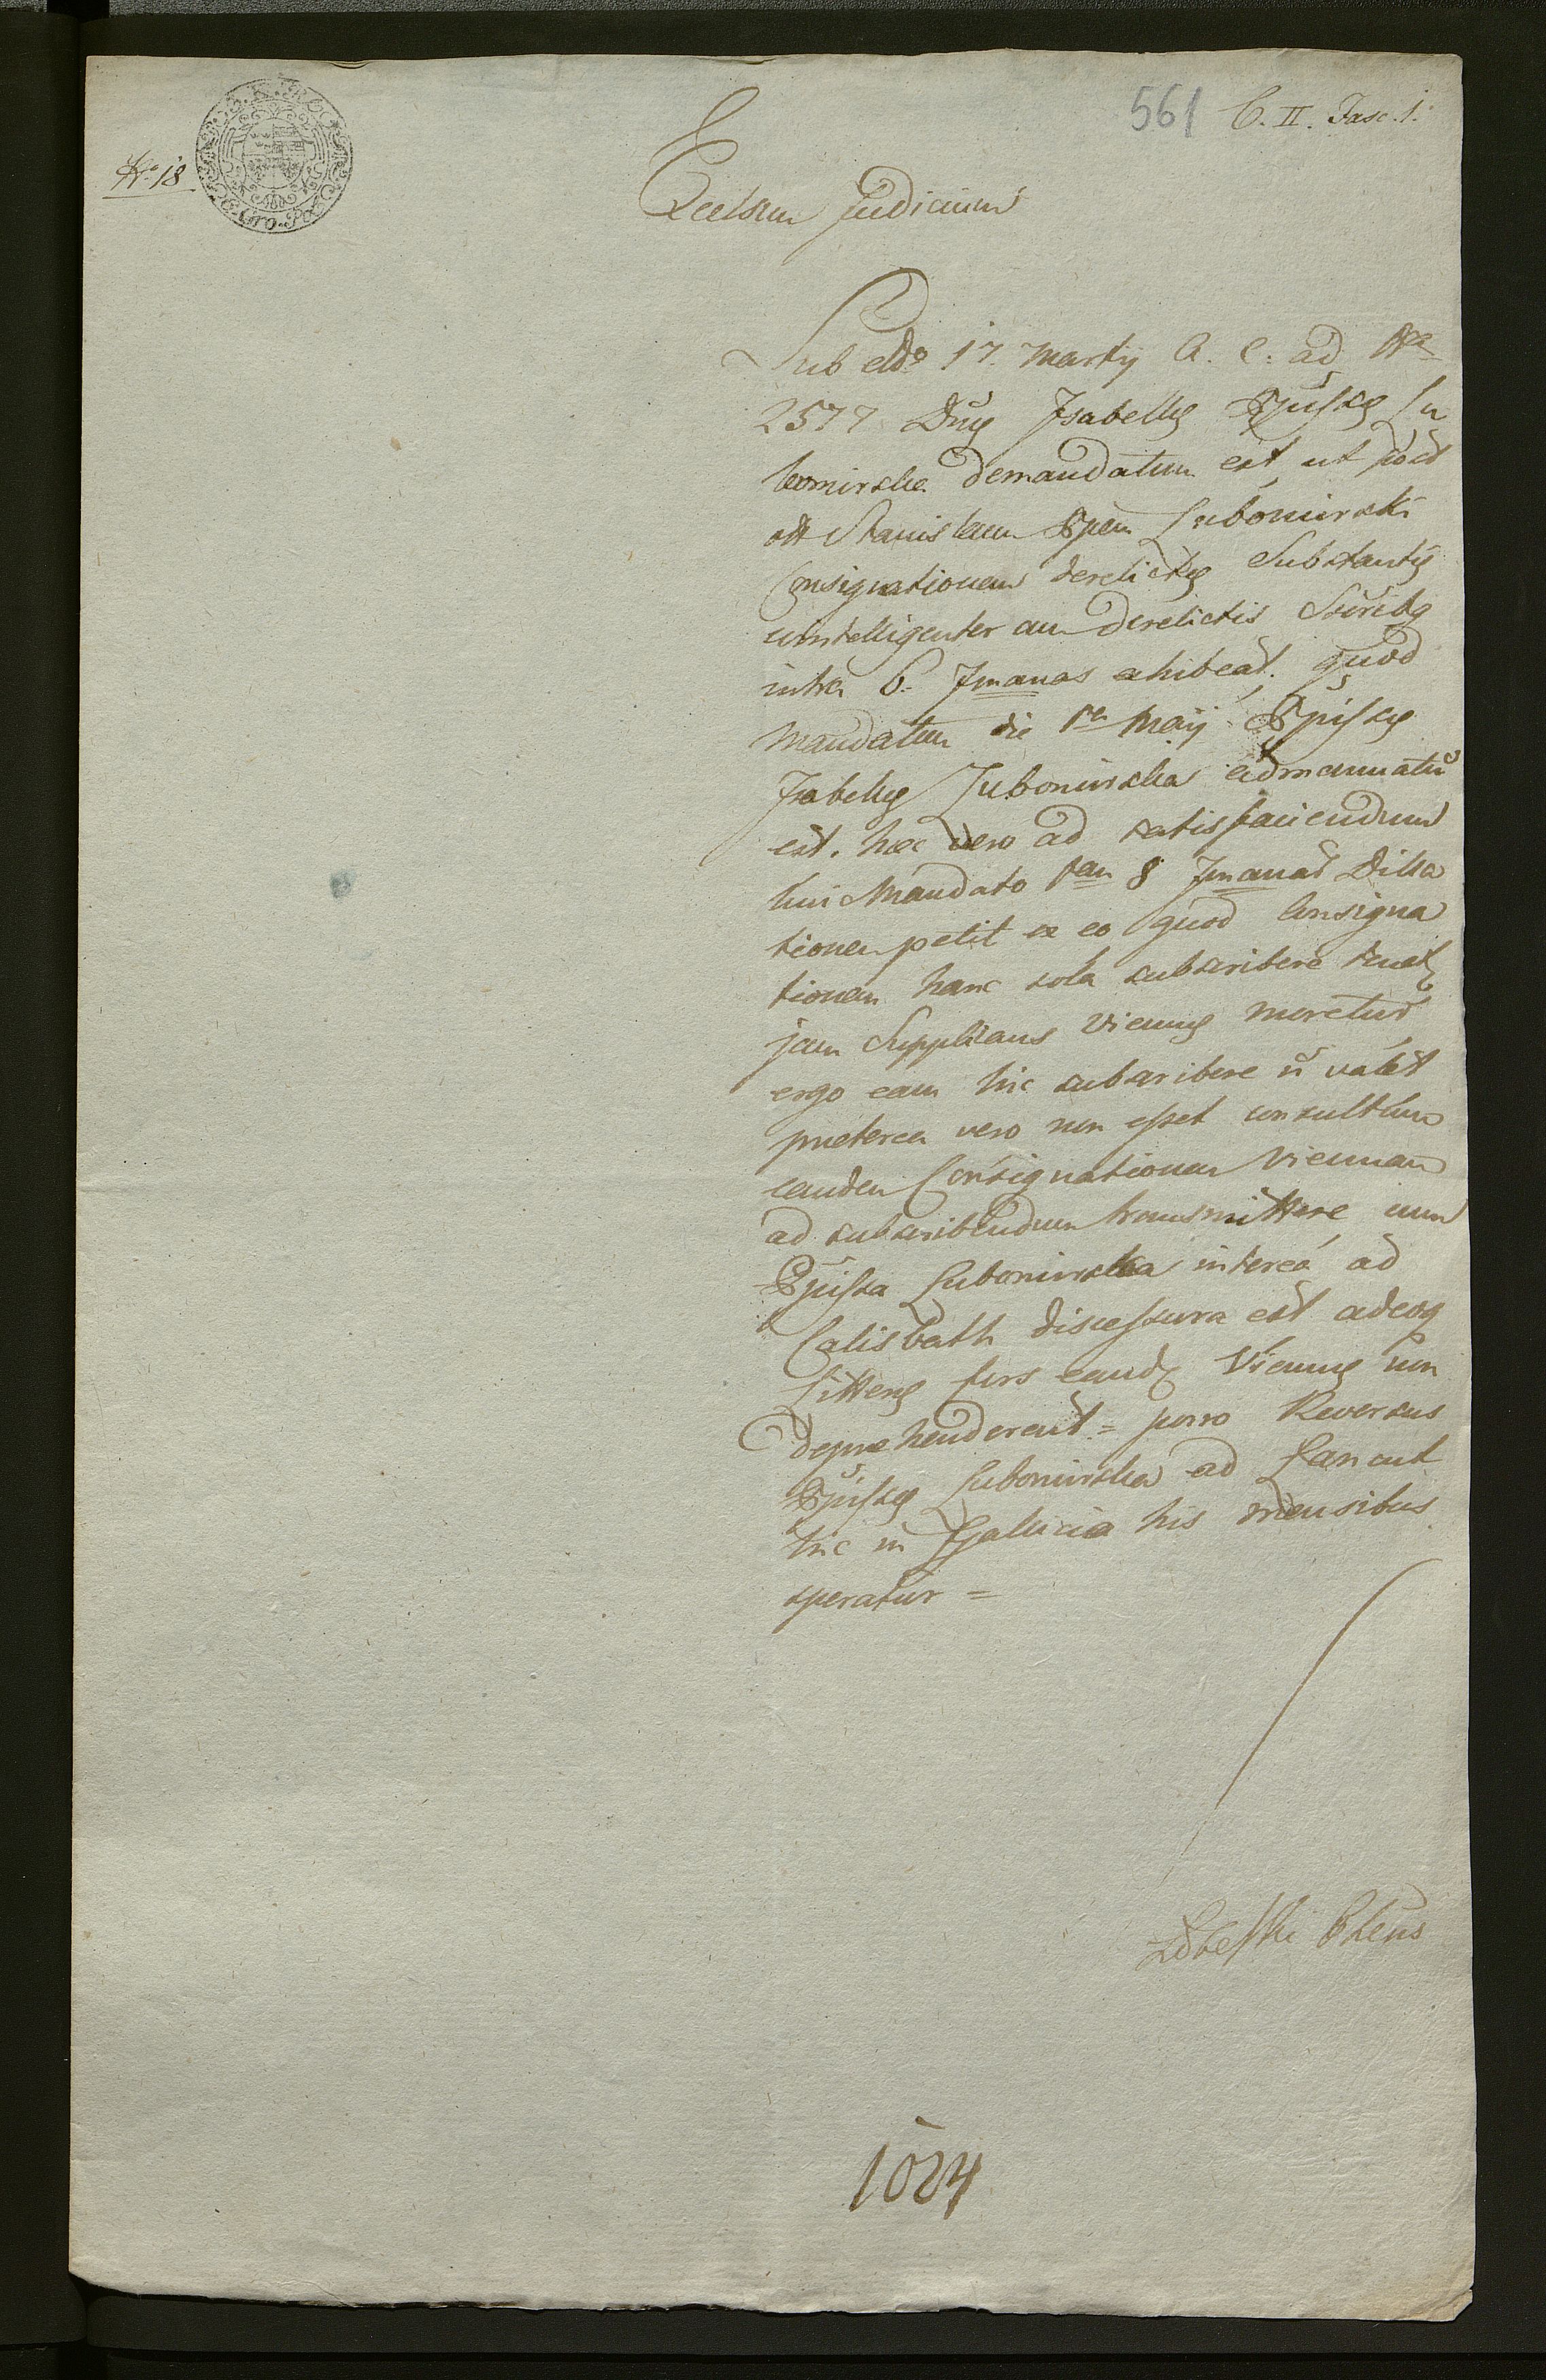 561 C. II. Fasc. 1.
Nro 18.
Excelsum Judicium
Sub ddo 17. Martij A. C. ad Nrm
2577 Dnæ Isabellæ Ppissæ Lu
bomirska demandatum est ut post
Stanislaum Ppem Lubomirski
Consignationem derelictæ Substantiæ
intelligenter cum derelictis Script
intra 6. 7manas exhibeat. quod
Mandatum die 1a Maij Ppissæ
Isabellæ Lubomirska admanuatū
est. hæc vero ad satisfaciendum
huic Mandato 8 7manar Dilla
tionem petit ex eo quod Consigna
tionem hanc sola subscribere
jam Supplicans Viennæ moretur
ergo eam hic subscribere n̄ valet
præterea vero non esset consultum
eandem Consignationem Viennam
ad subscribendum transmittere cum
Ppissa Lubomirska interea ad
Calisbath discessura est adeoq
Litteræ fors eand Viennæ non
deprehenderent = porro Reversus
Ppissæ Lubomirska ad Lancut
hic in Gallicia his mensibus
speratur =
1024